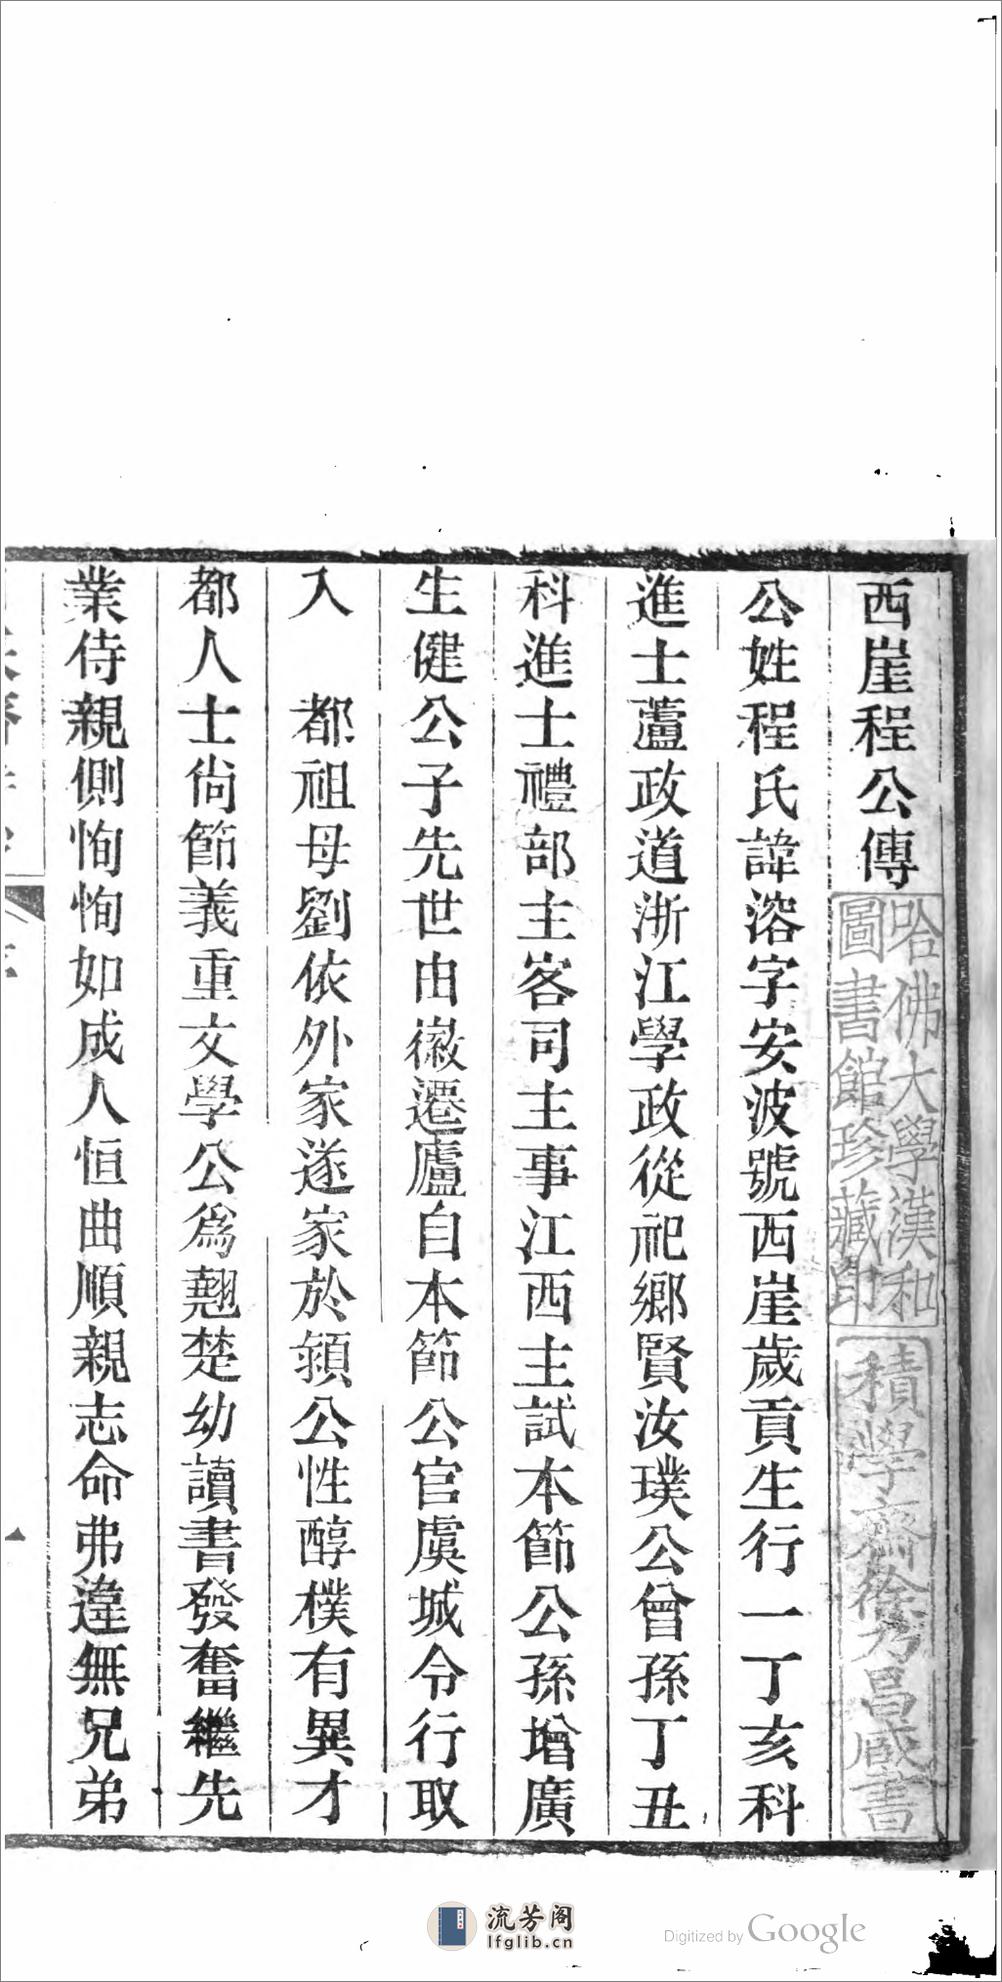 西崖程公傳
哈佛大學漢和
圖書館珍藏印
積學齋徐乃昌藏書
公姓程氏諱溶字安波號西崖歲貢生行一丁亥科
進士蘆政道浙江學政從祀鄉賢汝璞公曾孫丁丑
科進士禮部主客司主事江西主試本節公孫增廣
生健公子先世由徽遷廬自本節公官虞城令行取
入　都祖母劉依外家遂家於潁公性醇樸有異才
都人士尙節義重文學公爲翹楚幼讀書發奮繼先
業侍親側恂恂如成人恒曲順親志命弗違無兄弟
流芳阁
lfglib.cn
Digitized by Google